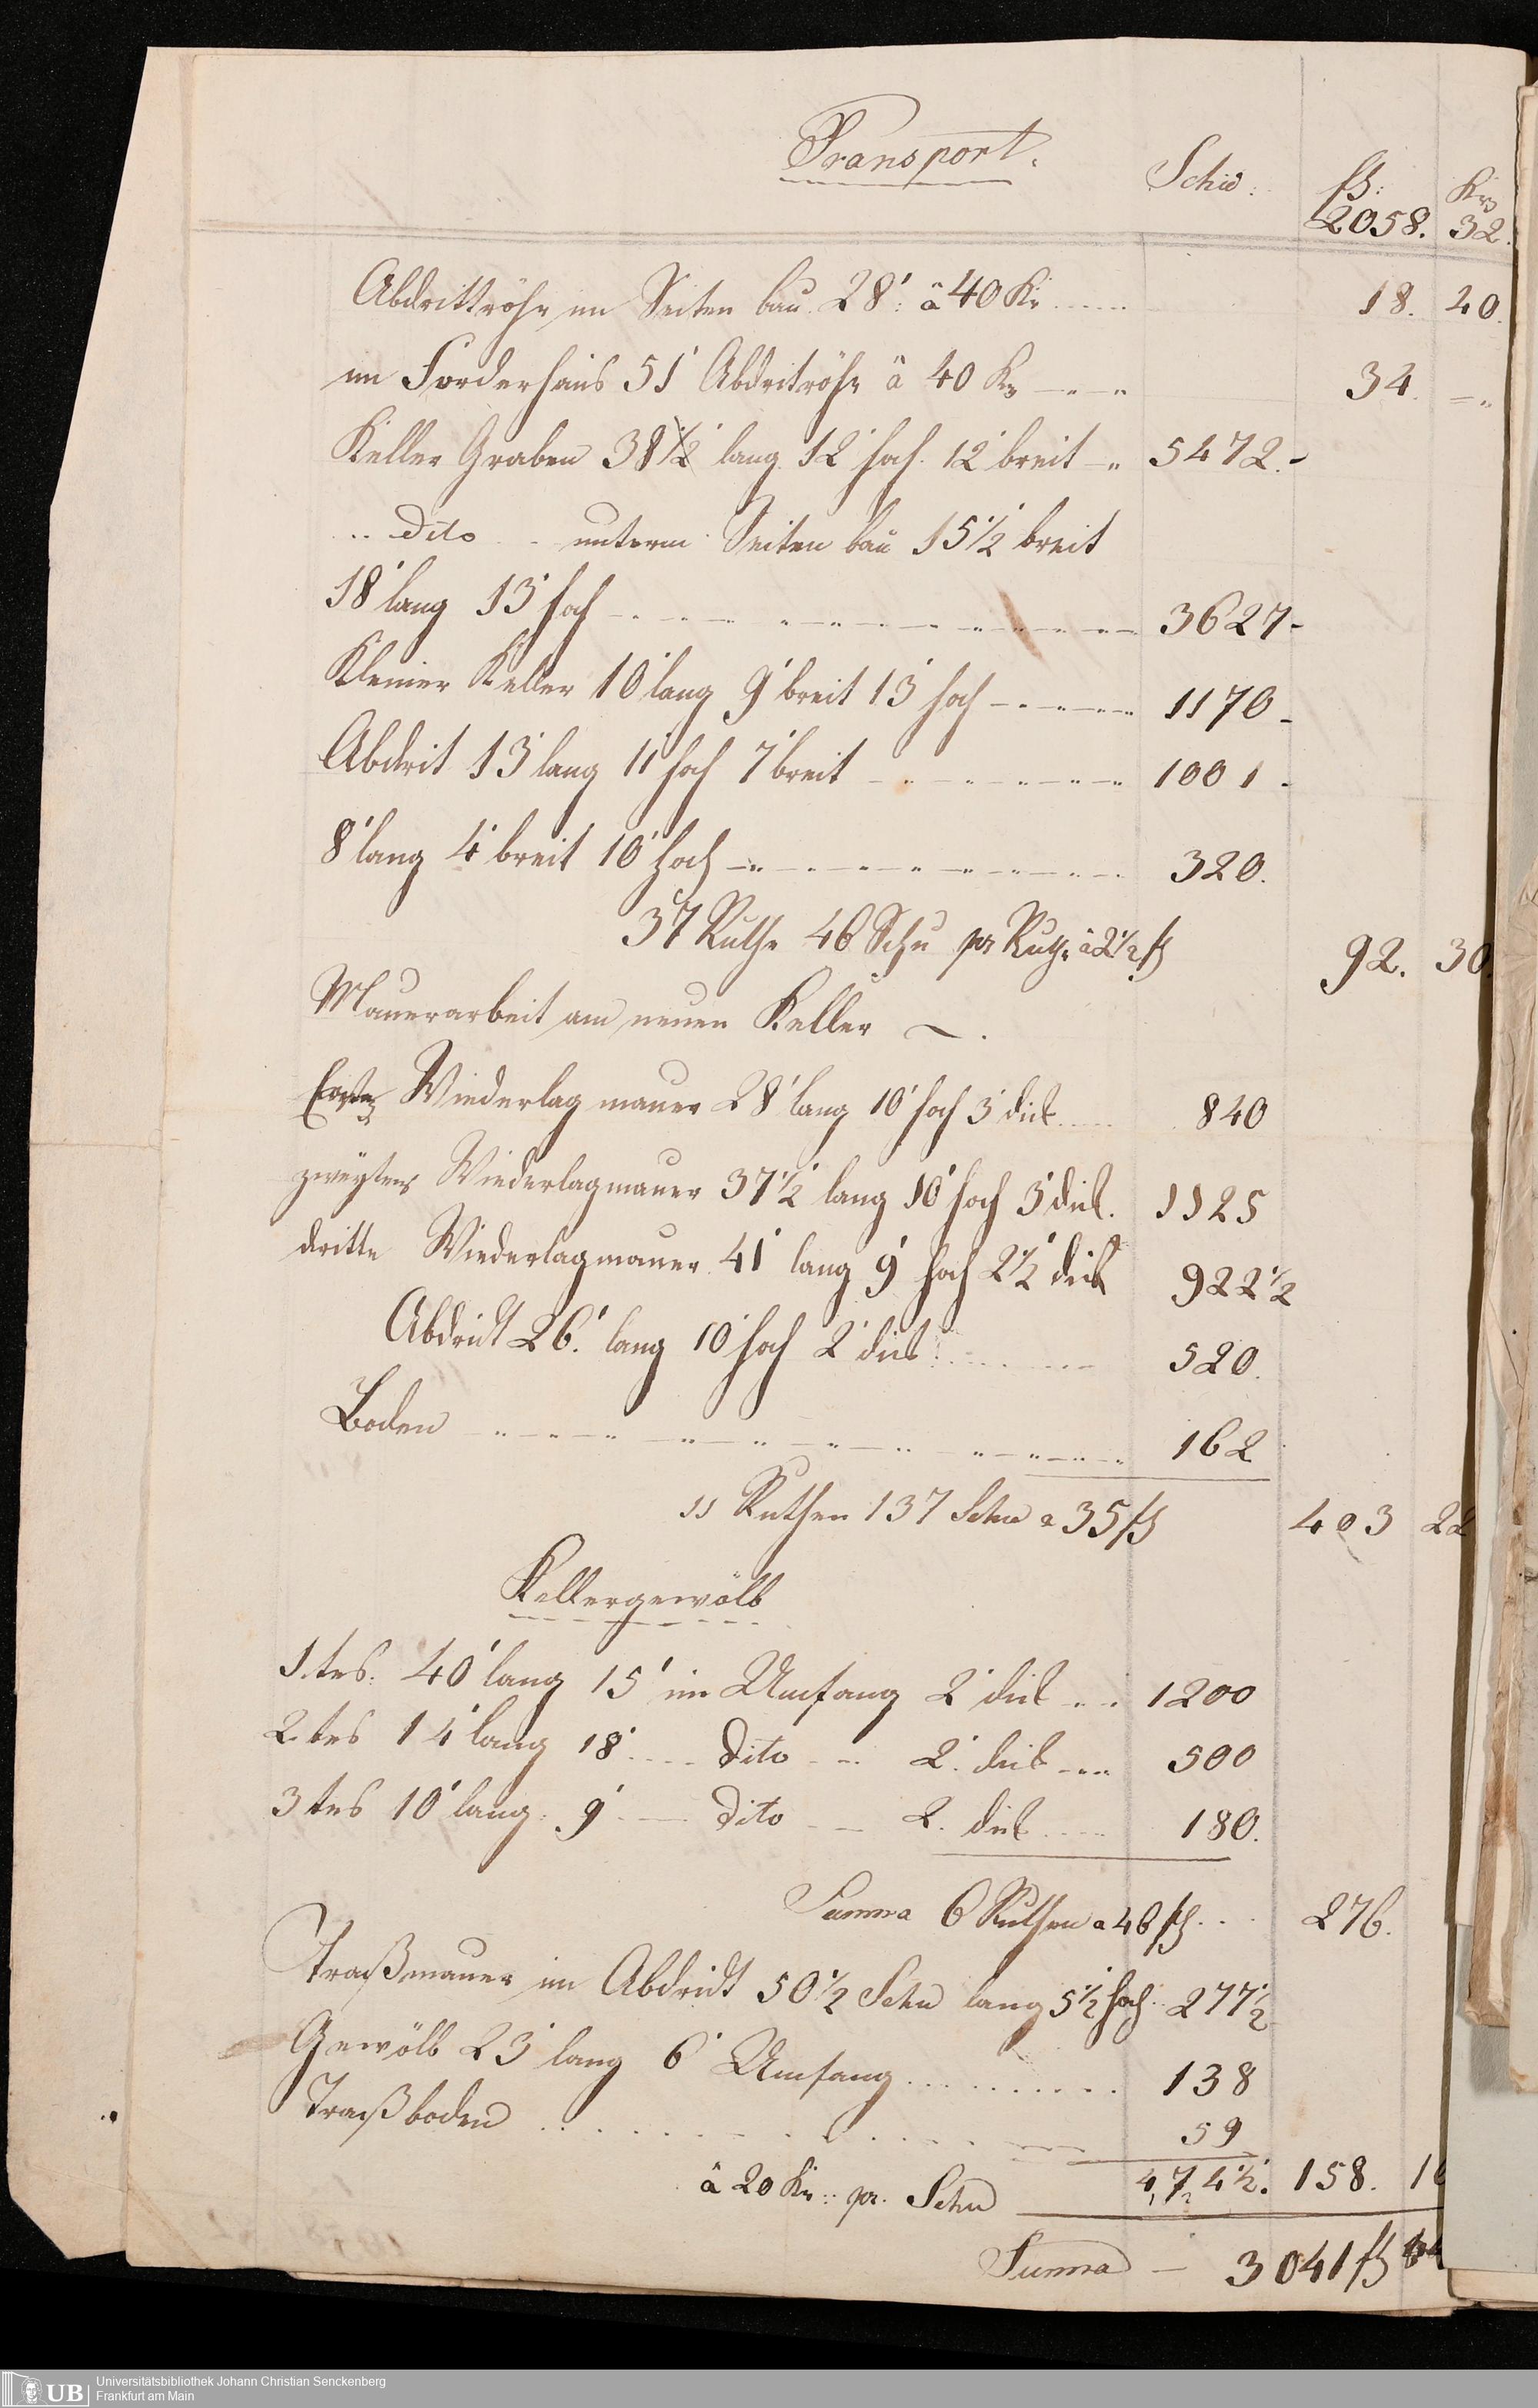 Transport. Schu: fl: Kr
2058. 32.
Abdrittröhr im Seiten bau 28': â 40 Kr 18. 40.
im Forderhaus 51' Abdritröhr â 40 Kr 34. -
Keller Graben 38 1/2' lang 12' hoch 12' breit 5472.-
dito unterm Seiten bau 15 1/2 breit
18' lang 13' hoch 3627-
Kleiner Keller 10' lang 9' breit 13' hoch 1170-
Abdrit 13' lang 11' hoch 7' breit 1001-
8' lang 4' breit 10' hoch 320.
37 Ruthe 46 Schu pr Ruthe â 2 1/2 fl 92. 30.
Mauerarbeit am neuen Keller
Erste Wiederlagmauer 28' lang 10' hoch 3' dick 840
zweytens Wiederlagmauer 37 1/2' lang 10' hoch 3' dick. 1125
dritte Wiederlagmauer 41' lang 9' hoch 2 1/2' dick 922 1/2
Abdridt 26.' lang 10' hoch 2' dick 520.
Boden 162
11 Ruthen 137 Schu a 35 fl 403 22
Kellergewölb
1.tes. 40' lang 15' im Umfang 2' dick 1200
2.tes 14' lang 18' dito 2'. dick 500
3tes 10' lang 9' dito 2. dick 180.
Summa 6 Ruthen a 46 fl 276.
Traßmauer im Abdridt 50 1/2 Schu lang 5 1/2' hoch 277 1/2
Gewölb 23' lang 6' Umfang 138
Traßboden 59
â 20 Kr: pr. Schu 474 1/2. 158. 10
Summa - 3041 fl
UB Universitätsbibliothek Johann Christian Senckenberg
Frankfurt am Main